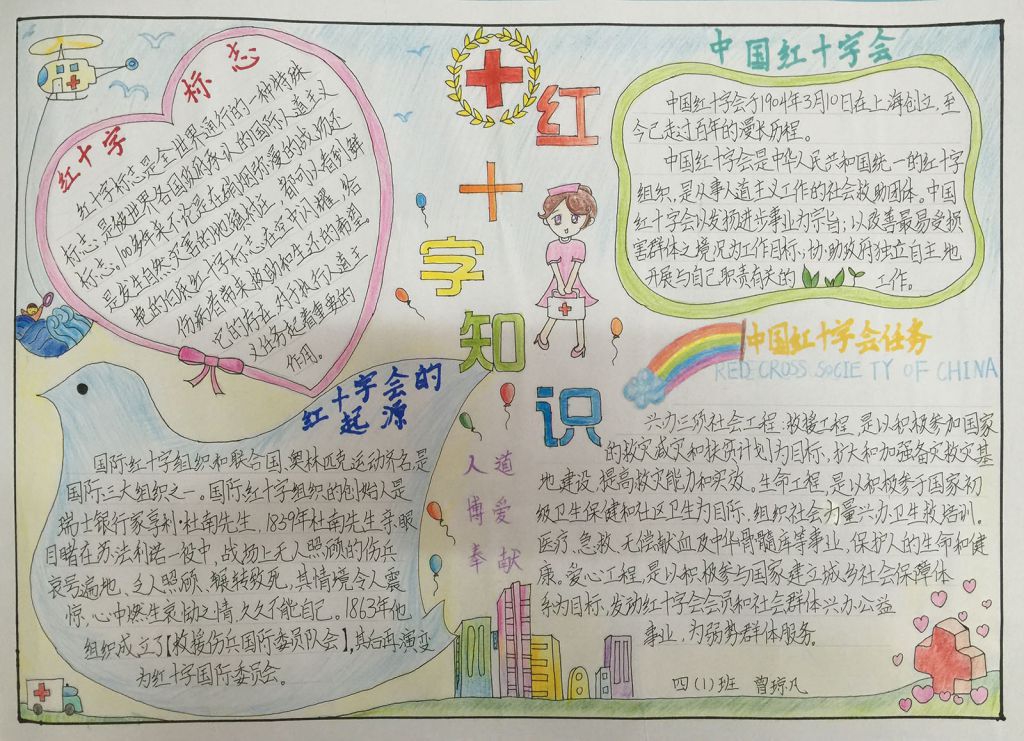 红十字
标志
红十字标志是全世界通行的一种特殊
标志,是被世界各国政府承认的国际人道主义
标志。100多年来不论是在硝烟弥漫的战场还
是发生自然灾害的地镇村庄,都可以看到鲜
艳的白底红十字标志在空中闪耀,给
伤病者带来被救助和生还的希望。
它的存在,对于执行人道主
义任务起着重要的
作用。
红
十
字
知
识
人道
博爱
奉献
中国红十字会
中国红十字会于1904年3月10日在上海创立,至
今已走过百年的漫长历程。
中国红十字会是中华人民共和国统一的红十字
组织,是从事人道主义工作的社会救助团体。中国
红十字会以发扬进步事业为宗旨;以改善最易受损
害群体之境况为工作目标,协助政府独立自主地
开展与自己职责有关的 工作。
红十字会的
起源
国际红十字组织和联合国、奥林匹克运动齐名是
国际三大组织之一。国际红十字组织的创始人是
瑞士银行家亨利·杜南先生,1859年杜南先生亲眼
目睹在苏法利诺一役中,战场上无人照顾的伤兵
哀号遍地,乏人照顾、辗转致死,其情境令人震
惊,心中燃生哀恸之情,久久不能自己。1863年他
组织成立了【救援伤兵国际委员队会】,其后再演变
为红十字国际委员会。
中国红十字会任务
RED CROSS SOCIETY OF CHINA
兴办三项社会工程:救援工程,是以积极参加国家
的救灾减灾和扶贫计划为目标,扩大和加强备灾救灾基
地建设,提高救灾能力和实效。生命工程,是以积极参于国家初
级卫生保健和社区卫生为目标,组织社会力量兴办卫生救培训、
医疗、急救、无偿献血及中华骨髓库等事业,保护人的生命和健
康。爱心工程,是以积极参与国家建立城乡社会保障体
系为目标,发动红十字会会员和社会群体兴办公益
事业,为弱势群体服务。
四(1)班 曾琼凡